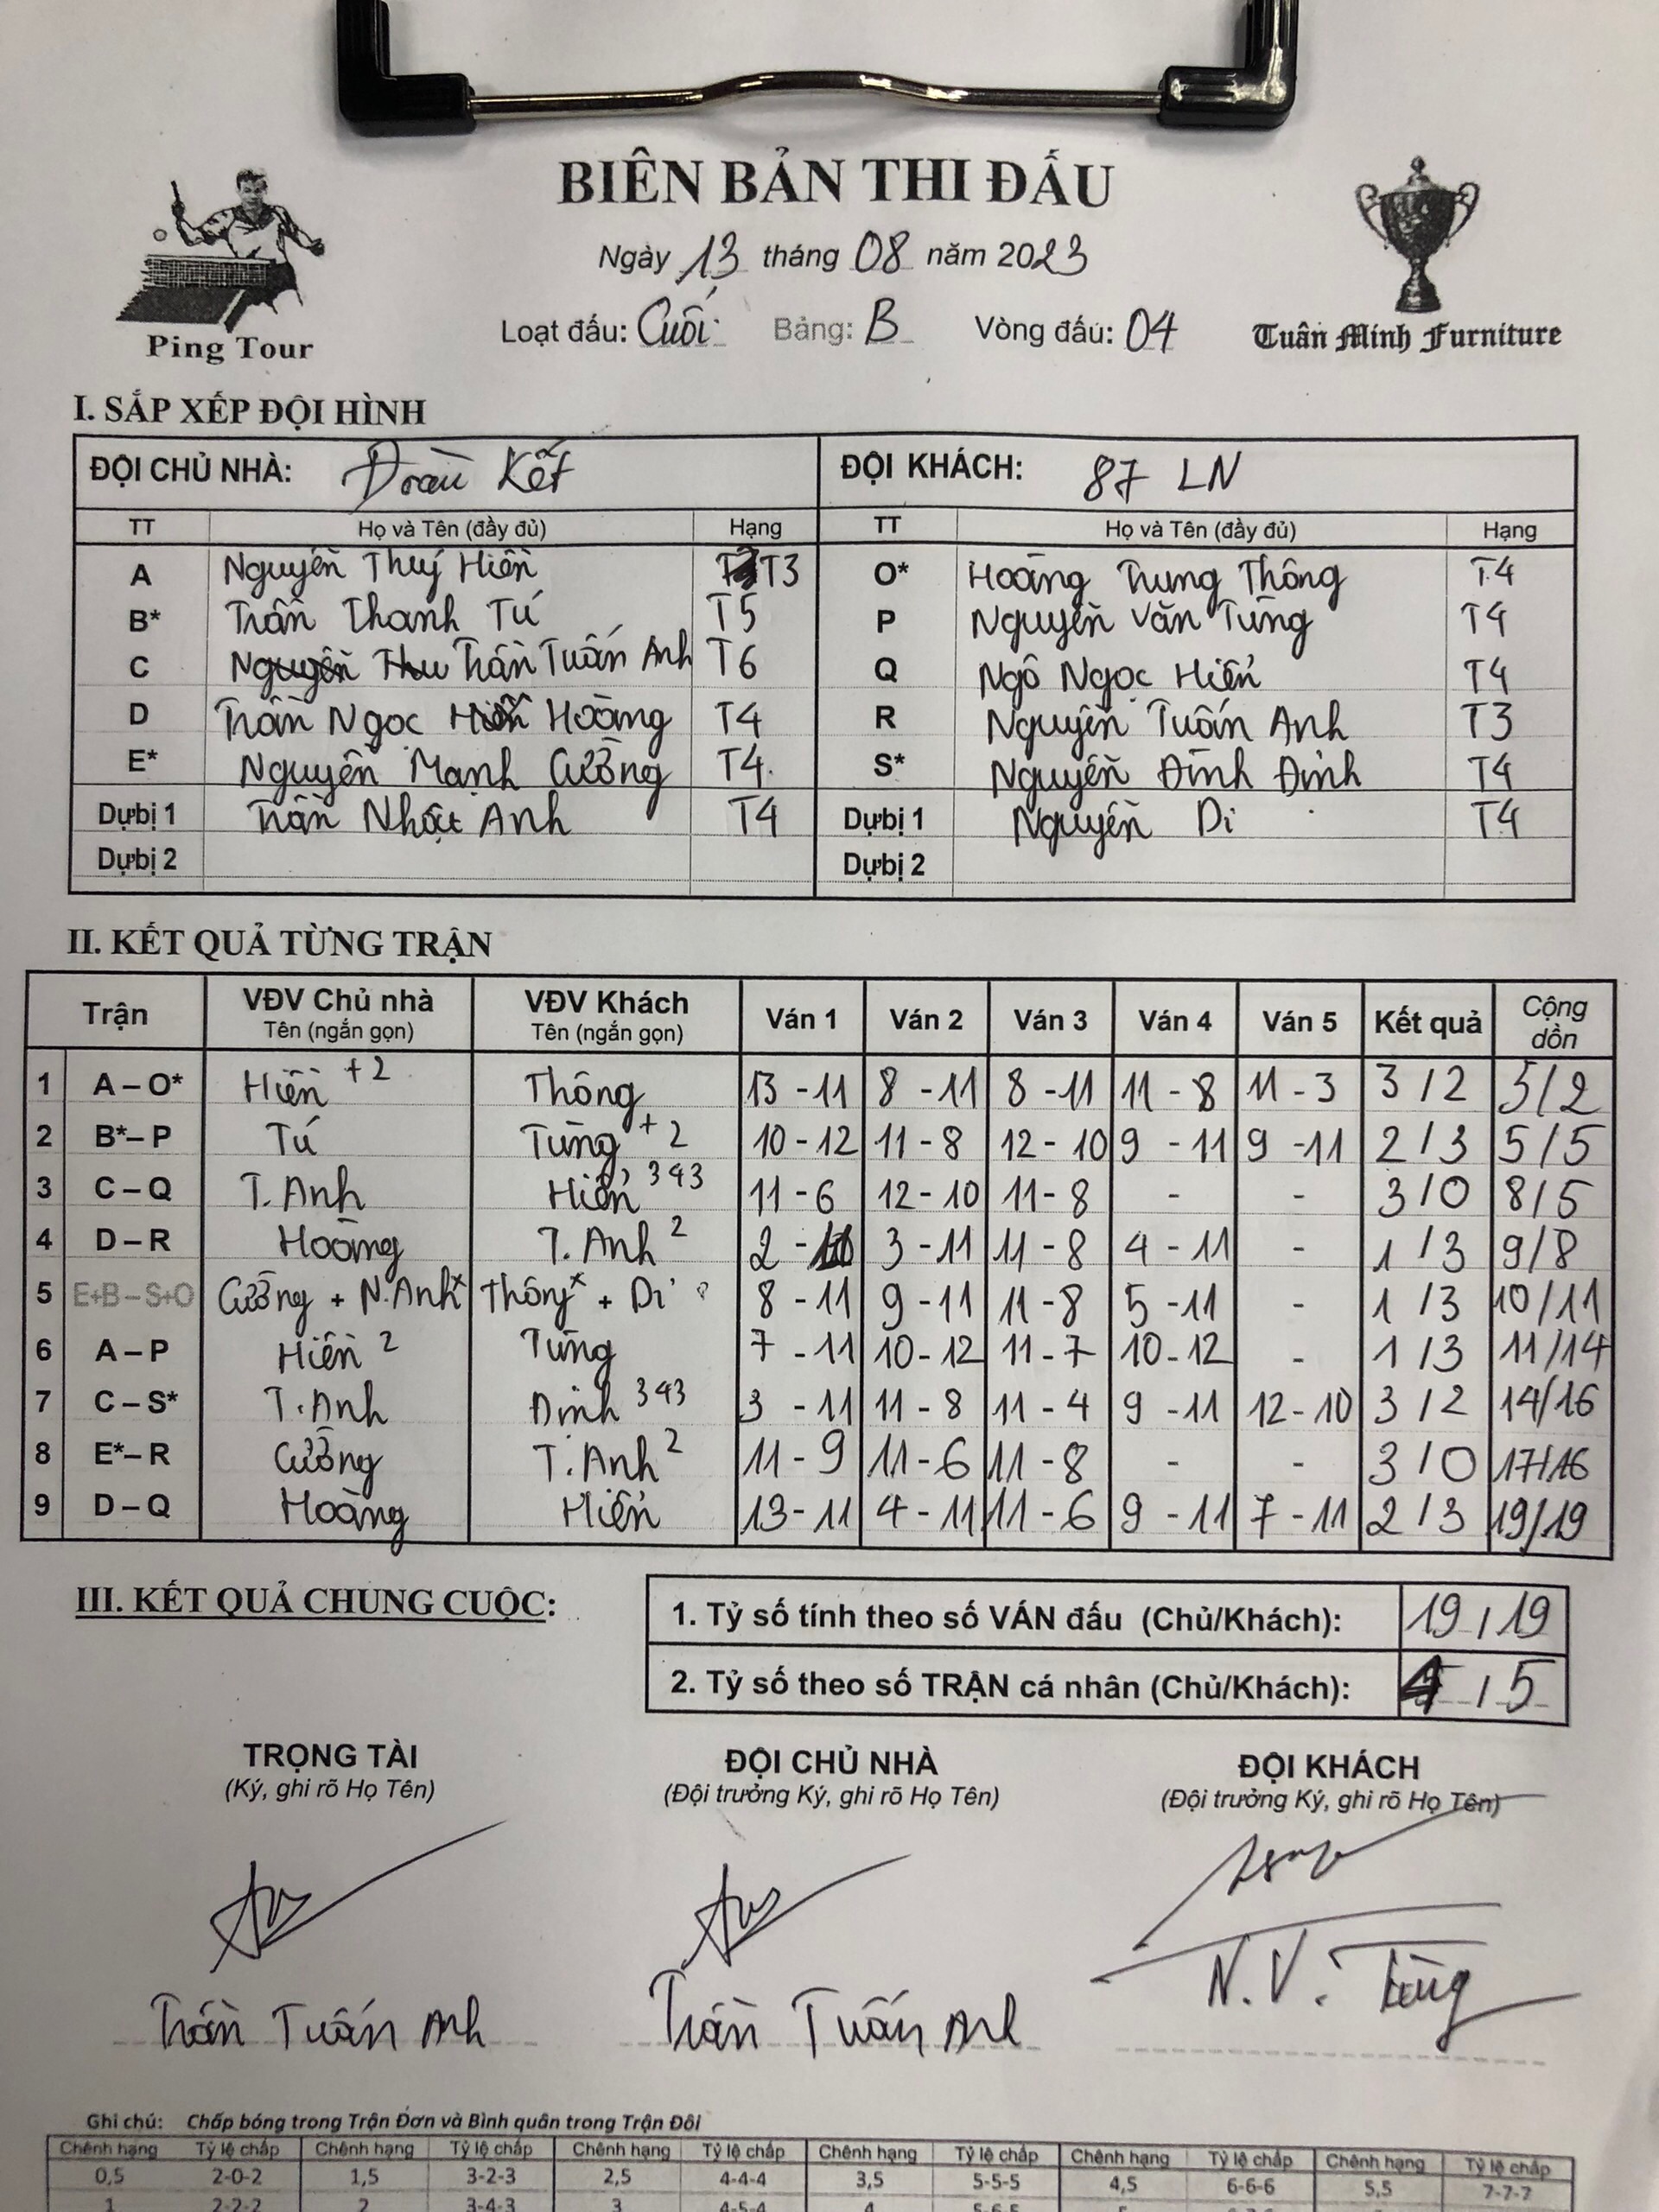 BIÊN BẢN THI ĐẤU
Ngày 13 tháng 08 năm 2023
Loạt đấu: Cuối Bảng: B Vòng đấu: 04
Ping Tour
Tuân Minh Furniture
I. SẮP XẾP ĐỘI HÌNH
ĐỘI CHỦ NHÀ: Đoàn Kết ĐỘI KHÁCH: 87 LN
TT Họ và Tên (đầy đủ) Hạng TT Họ và Tên (đầy đủ) Hạng
A Nguyễn Thuý Hiền T3 O* Hoàng Trung Thông T4
B* Trần Thanh Tú T5 P Nguyễn Văn Tùng T4
C Trần Tuấn Anh T6 Q Ngô Ngọc Hiển T4
D Trần Ngọc Hoàng T4 R Nguyễn Tuấn Anh T3
E* Nguyễn Mạnh Cường T4 S* Nguyễn Đình Đỉnh T4
Dự bị 1 Trần Nhật Anh T4 Dự bị 1 Nguyễn Di T4
Dự bị 2 Dự bị 2
II. KẾT QUẢ TỪNG TRẬN
Trận VĐV Chủ nhà Tên (ngắn gọn) VĐV Khách Tên (ngắn gọn) Ván 1 Ván 2 Ván 3 Ván 4 Ván 5 Kết quả Cộng dồn
1 A – O* Hiền +2 Thông 13 - 11 8 - 11 8 - 11 11 - 8 11 - 3 3 / 2 3/2
2 B*– P Tú Tùng +2 10 - 12 11 - 8 12 - 10 9 - 11 9 - 11 2 / 3 5/5
3 C – Q T. Anh Hiển 343 11 - 6 12 - 10 11 - 8 - - 3 / 0 8/5
4 D – R Hoàng T. Anh 2 2 - 11 3 - 11 11 - 8 4 - 11 - 1 / 3 9/8
5 E+B – S+O Cường + N.Anh* Thông* + Di 8 - 11 9 - 11 11 - 8 5 - 11 - 1 / 3 10/11
6 A – P Hiền 2 Tùng 7 - 11 10 - 12 11 - 7 10 - 12 - 1 / 3 11/14
7 C – S* T. Anh Đỉnh 343 3 - 11 11 - 8 11 - 4 9 - 11 12 - 10 3 / 2 14/16
8 E*– R Cường T. Anh 2 11 - 9 11 - 6 11 - 8 - - 3 / 0 17/16
9 D – Q Hoàng Hiển 13 - 11 4 - 11 11 - 6 9 - 11 7 - 11 2 / 3 19/19
III. KẾT QUẢ CHUNG CUỘC:
1. Tỷ số tính theo số VÁN đấu (Chủ/Khách): 19 / 19
2. Tỷ số theo số TRẬN cá nhân (Chủ/Khách): 4 / 5
TRỌNG TÀI ĐỘI CHỦ NHÀ ĐỘI KHÁCH
(Ký, ghi rõ Họ Tên) (Đội trưởng Ký, ghi rõ Họ Tên) (Đội trưởng Ký, ghi rõ Họ Tên)
Trần Tuấn Anh Trần Tuấn Anh N.V. Tùng
Ghi chú: Chấp bóng trong Trận Đơn và Bình quân trong Trận Đôi
Chênh hạng Tỷ lệ chấp Chênh hạng Tỷ lệ chấp Chênh hạng Tỷ lệ chấp Chênh hạng Tỷ lệ chấp Chênh hạng Tỷ lệ chấp Chênh hạng Tỷ lệ chấp
0,5 2-0-2 1,5 3-2-3 2,5 4-4-4 3,5 5-5-5 4,5 6-6-6 5,5 7-7-7
1 2-2-2 2 3-4-3 3 4-5-4 4 5-6-5